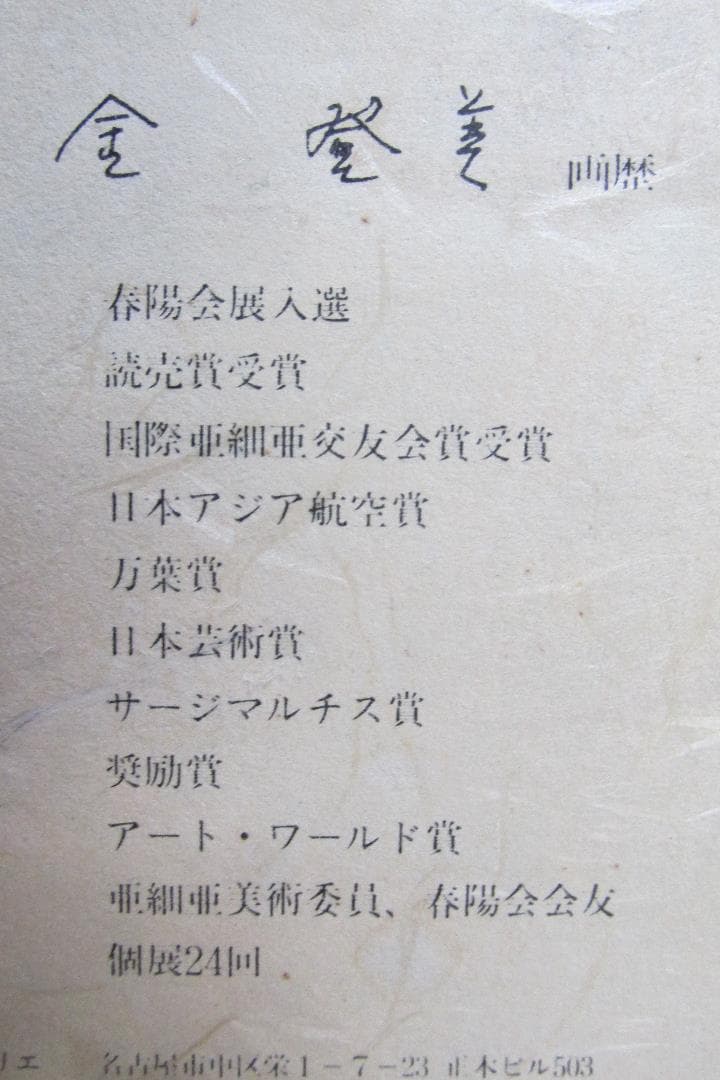 金 登美 画歴
春陽会展入選
読売賞受賞
国際亜細亜交友会賞受賞
日本アジア航空賞
万葉賞
日本芸術賞
サージマルチス賞
奨励賞
アート・ワールド賞
亜細亜美術委員、春陽会会友
個展24回
リエ 名古屋市中区栄1-7-23 正木ビル503